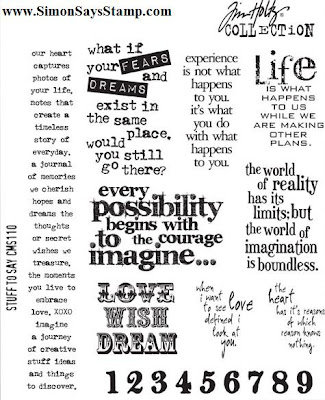 www.SimonSaysStamp.com
Tim Holtz
COLLECTION
our heart
captures
photos of
your life,
notes that
create a
timeless
story of
everyday.
a journal
of memories
we cherish
hopes and
dreams the
thoughts
or secret
wishes we
treasure,
the moments
you live to
embrace
love, XOXO
imagine
a journey
of creative
stuff ideas
and things
to discover.
what if
your FEARS
and
DREAMS
exist in
the same
place,
would
you still
go there?
experience
is not what
happens
to you,
it's what
you do
with what
happens
to you.
Life
IS WHAT
HAPPENS
TO US
WHILE WE
ARE MAKING
OTHER
PLANS.
every
possibility
begins with
the courage
to
imagine...
the world
of reality
has its
limits; but
the world of
imagination
is boundless.
LOVE
WISH
DREAM
when
i want
to see love
defined i
look at
you.
the
heart
has it's reasons
of which
reason knows
nothing.
STUFF TO SAY CMS110
1 2 3 4 5 6 7 8 9